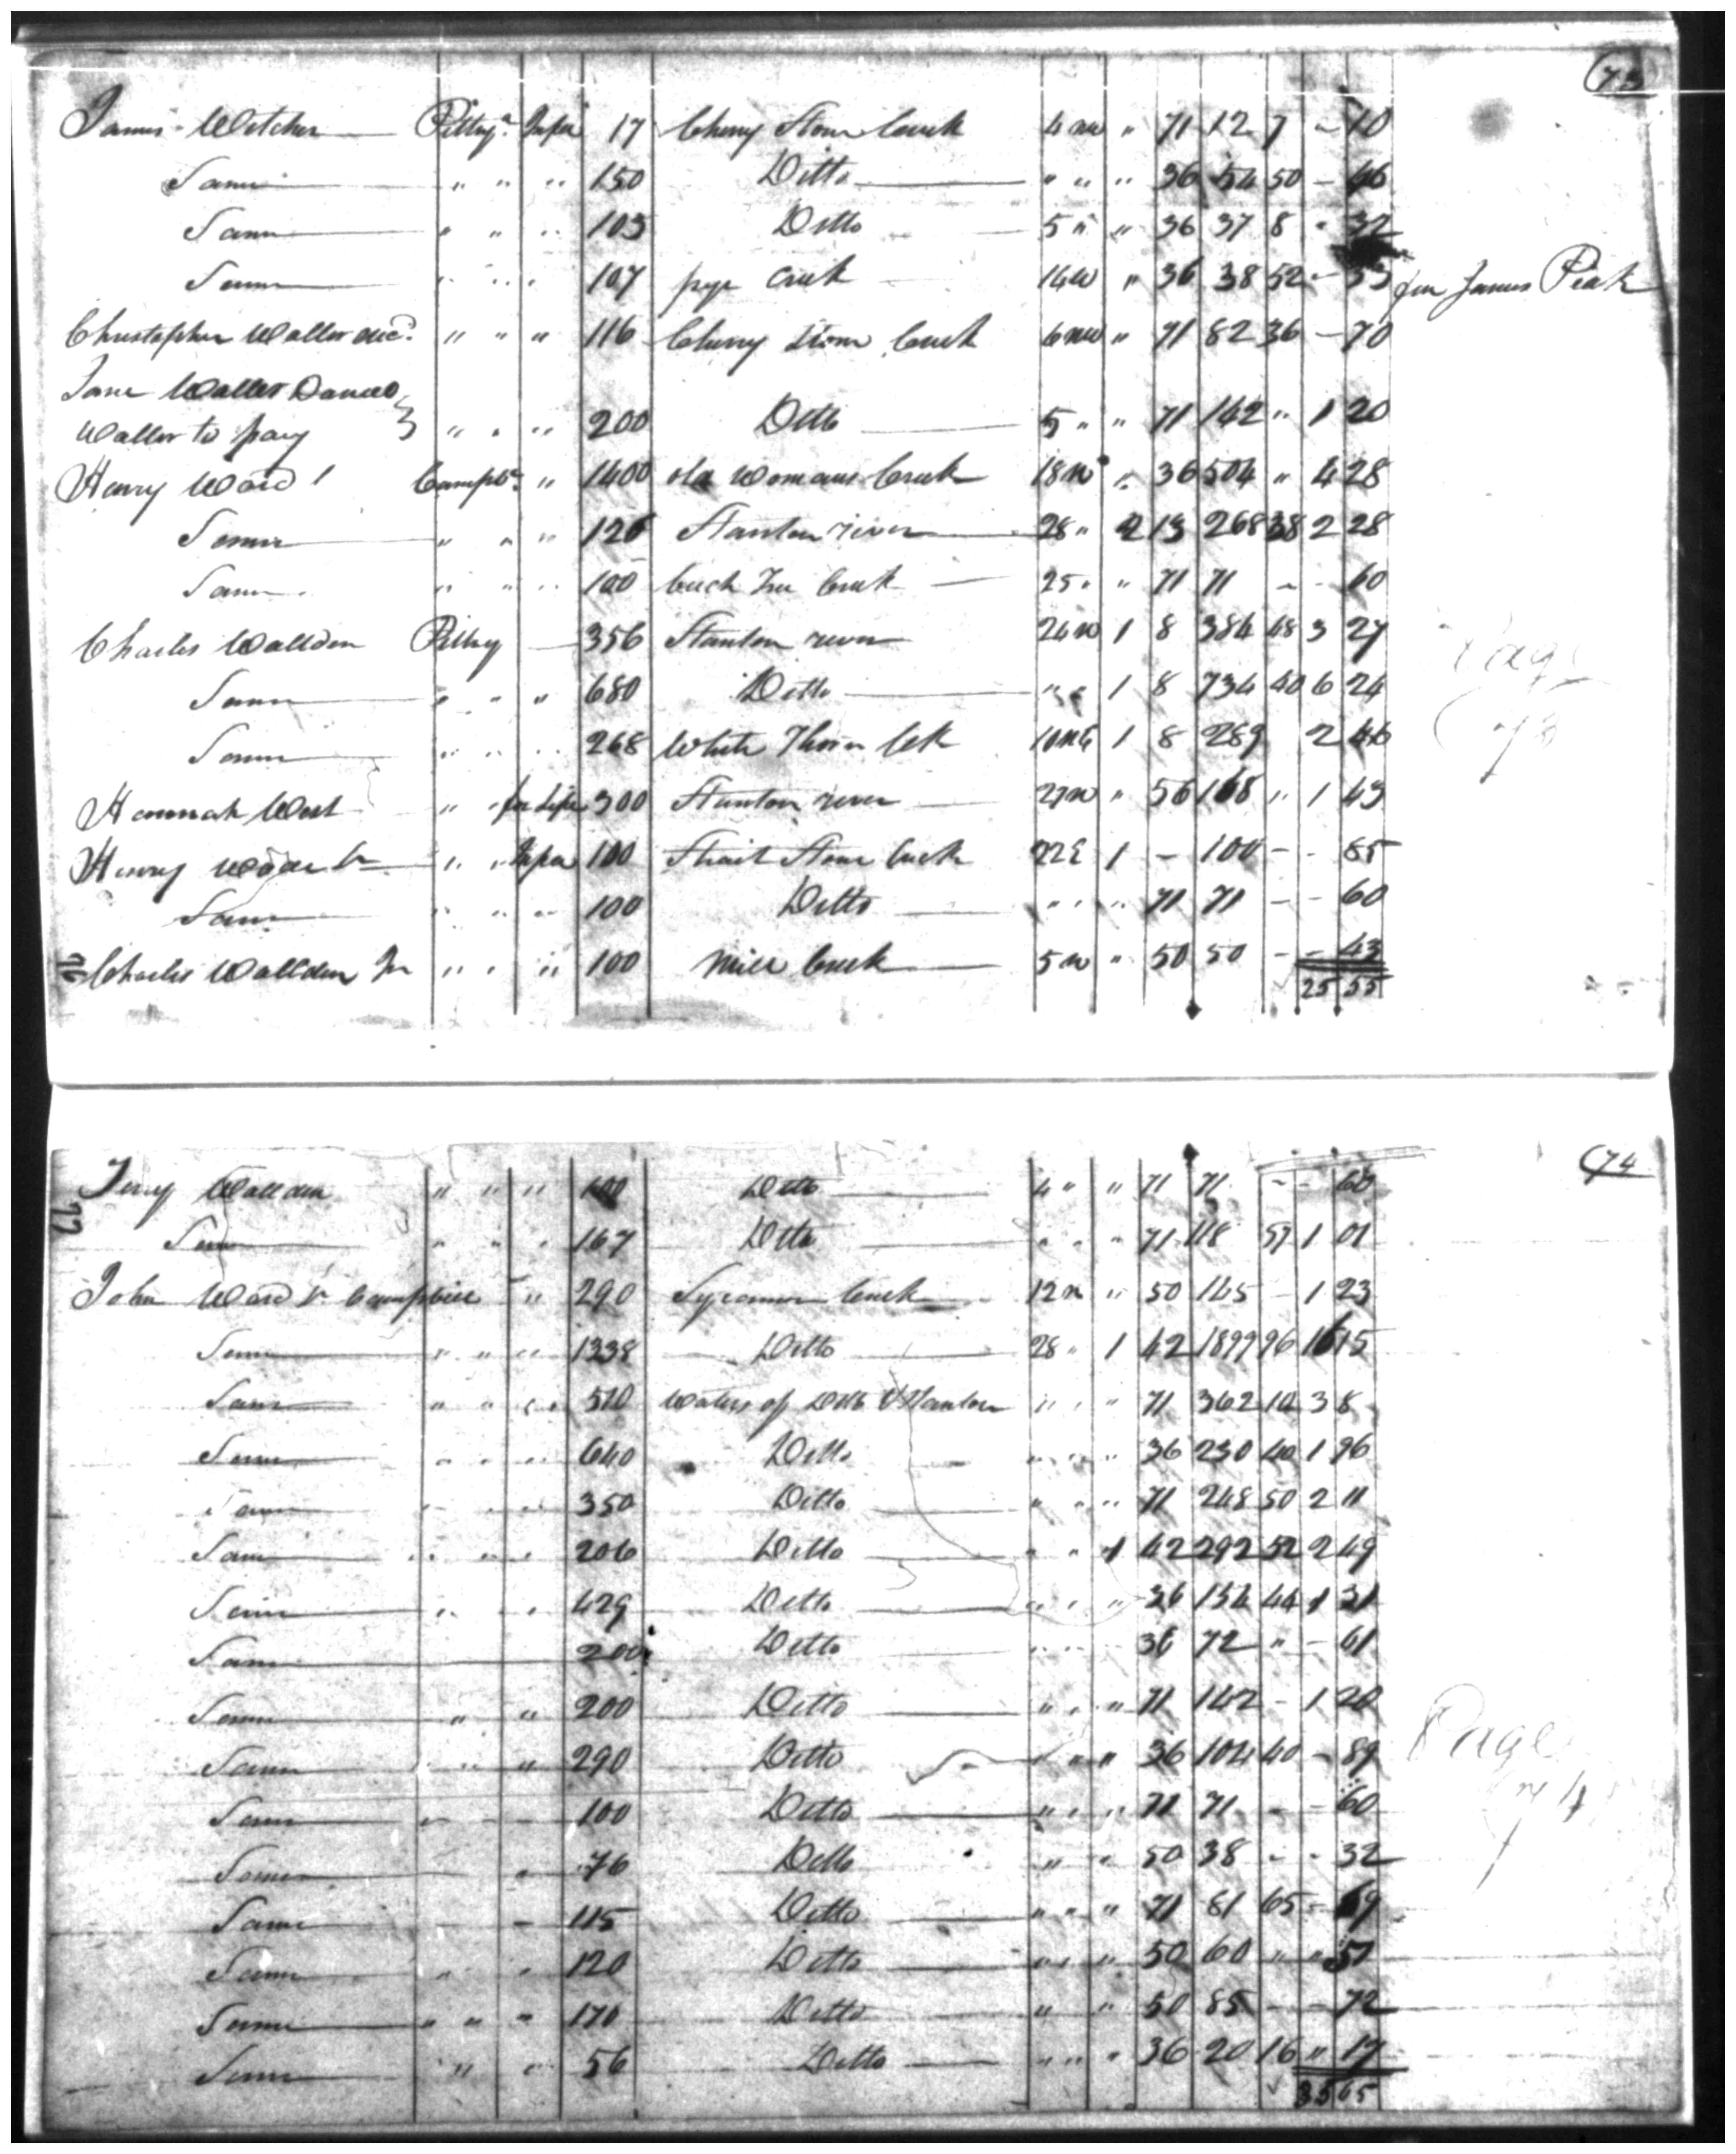 (73)
James Witcher Pittsya. In fee 17 Cherry Stone Creek 4 NW " 71 12 7 - 10
Same " " " 150 Ditto " " " 36 54 50 - 46
Same " " " 103 Ditto 5 " " 36 37 8 " 32
Same " " " 107 pige Creek 14 W " 36 38 52 - 33 for James Peak
Christopher Waller decd. " " " 116 Cherry Stone Creek 6 NW " 71 82 36 - 70
Jane Waller Daniel
Waller to pay " " " 200 Ditto 5 " " 71 142 " 1 20
Henry Ward Campbl. " 1400 old Womans Creek 18 N " 36 504 " 4 28
Same " " " 126 Stanton river 28 " 2 13 268 38 2 28
Same " " " 100 buck Tree Creek 25 " " 71 71 - - 60
Charles Wallden Pittsy 356 Stanton river 26 N 1 8 384 48 3 27
Page
Same " " " 680 Ditto " " 1 8 734 40 6 24
73
Same " " " 268 White Thorn Cek 10 NE 1 8 289 2 46
Hannah West " " for Life 300 Stanton river 27 N " 56 168 " 1 43
Henry " " In fee 100 Strait Stone Creek 22 E 1 - 100 - - 85
Same " " " 100 Ditto " " " 71 71 - - 60
Charles Wallden Jr " " " 100 Mill Creek 5 N " 50 50 - - 43
25 55
(74
77 Jerry Wallden " " " 100 Ditto 4 " " 71 71 - - 60
Same " " " 167 Ditto " " " 71 118 57 1 01
John Ward Sr. Campbell " 290 Sycamore Creek 12 N " 50 145 - 1 23
Same " " " 1338 Ditto 28 " 1 42 1899 96 16 15
Same " " " 510 Waters of Ditto & Stanton " " " 71 362 10 3 8
Same " " " 640 Ditto " " " 36 230 40 1 96
Same " " " 350 Ditto " " " 71 248 50 2 11
Same " " " 206 Ditto " " 1 42 292 52 2 49
Same " " " 429 Ditto " " " 36 154 44 1 31
Same 200 Ditto " " " 36 72 " - 61
Same " " 200 Ditto " " " 71 142 - 1 20
Page
Same " " " 290 Ditto " " " 36 104 40 - 89
74
Same " 100 Ditto " " " 71 71 - - 60
Same " 76 Ditto " " 50 38 - - 32
Same - - 115 Ditto " " " 71 81 65 - 69
Same " " 120 Ditto " " " 50 60 " " 51
Same " " " 170 Ditto " " 50 85 - - 72
Same " " 56 Ditto " " " 36 20 16 " 17
35 65